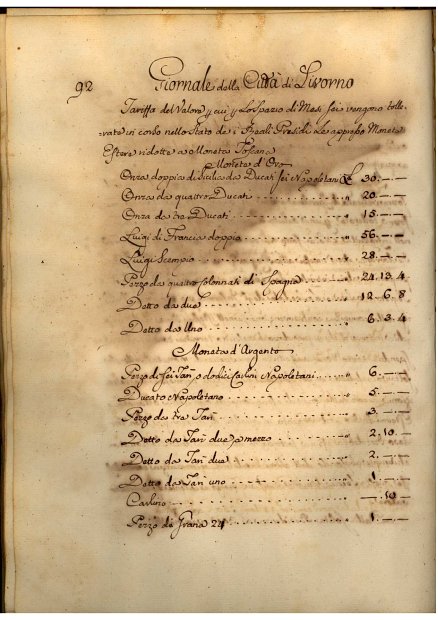 92
Giornale della Città di Livorno
Tariffa del Valore p cui p Lo Spazio di Mesi sei vengono tolle-
-rate in corso nello Stato de i Reali Presidj Le appresso Monete
Estere ridotte a Moneta Toscana
Monete d'Oro
Onza doppia di Sicilia da Ducati sei Napoletani £ 30.—.—
Onza da quattro Ducati " 20.—.—
Onza da tre Ducati " 15.—.—
Luigi di Francia doppio " 56.—.—
Luigi Scempio " 28.—.—
Pezzo da quattro Colonnati di Spagna " 24.13.4
Detto da due " 12.6.8
Detto da Uno " 6.3.4
Moneta d'Argento
Pezzo di sei Tarì o dodici Carlini Napoletani " 6.—.—
Ducato Napoletano " 5.—.—
Pezzo da tre Tarì " 3.—.—
Detto da Tarì due e mezzo " 2.10.—
Detto da Tarì due " 2.—.—
Detto da Tarì uno " 1.—.—
Carlino —.10.—
Pezzo di Grana 24 " 1.—.—